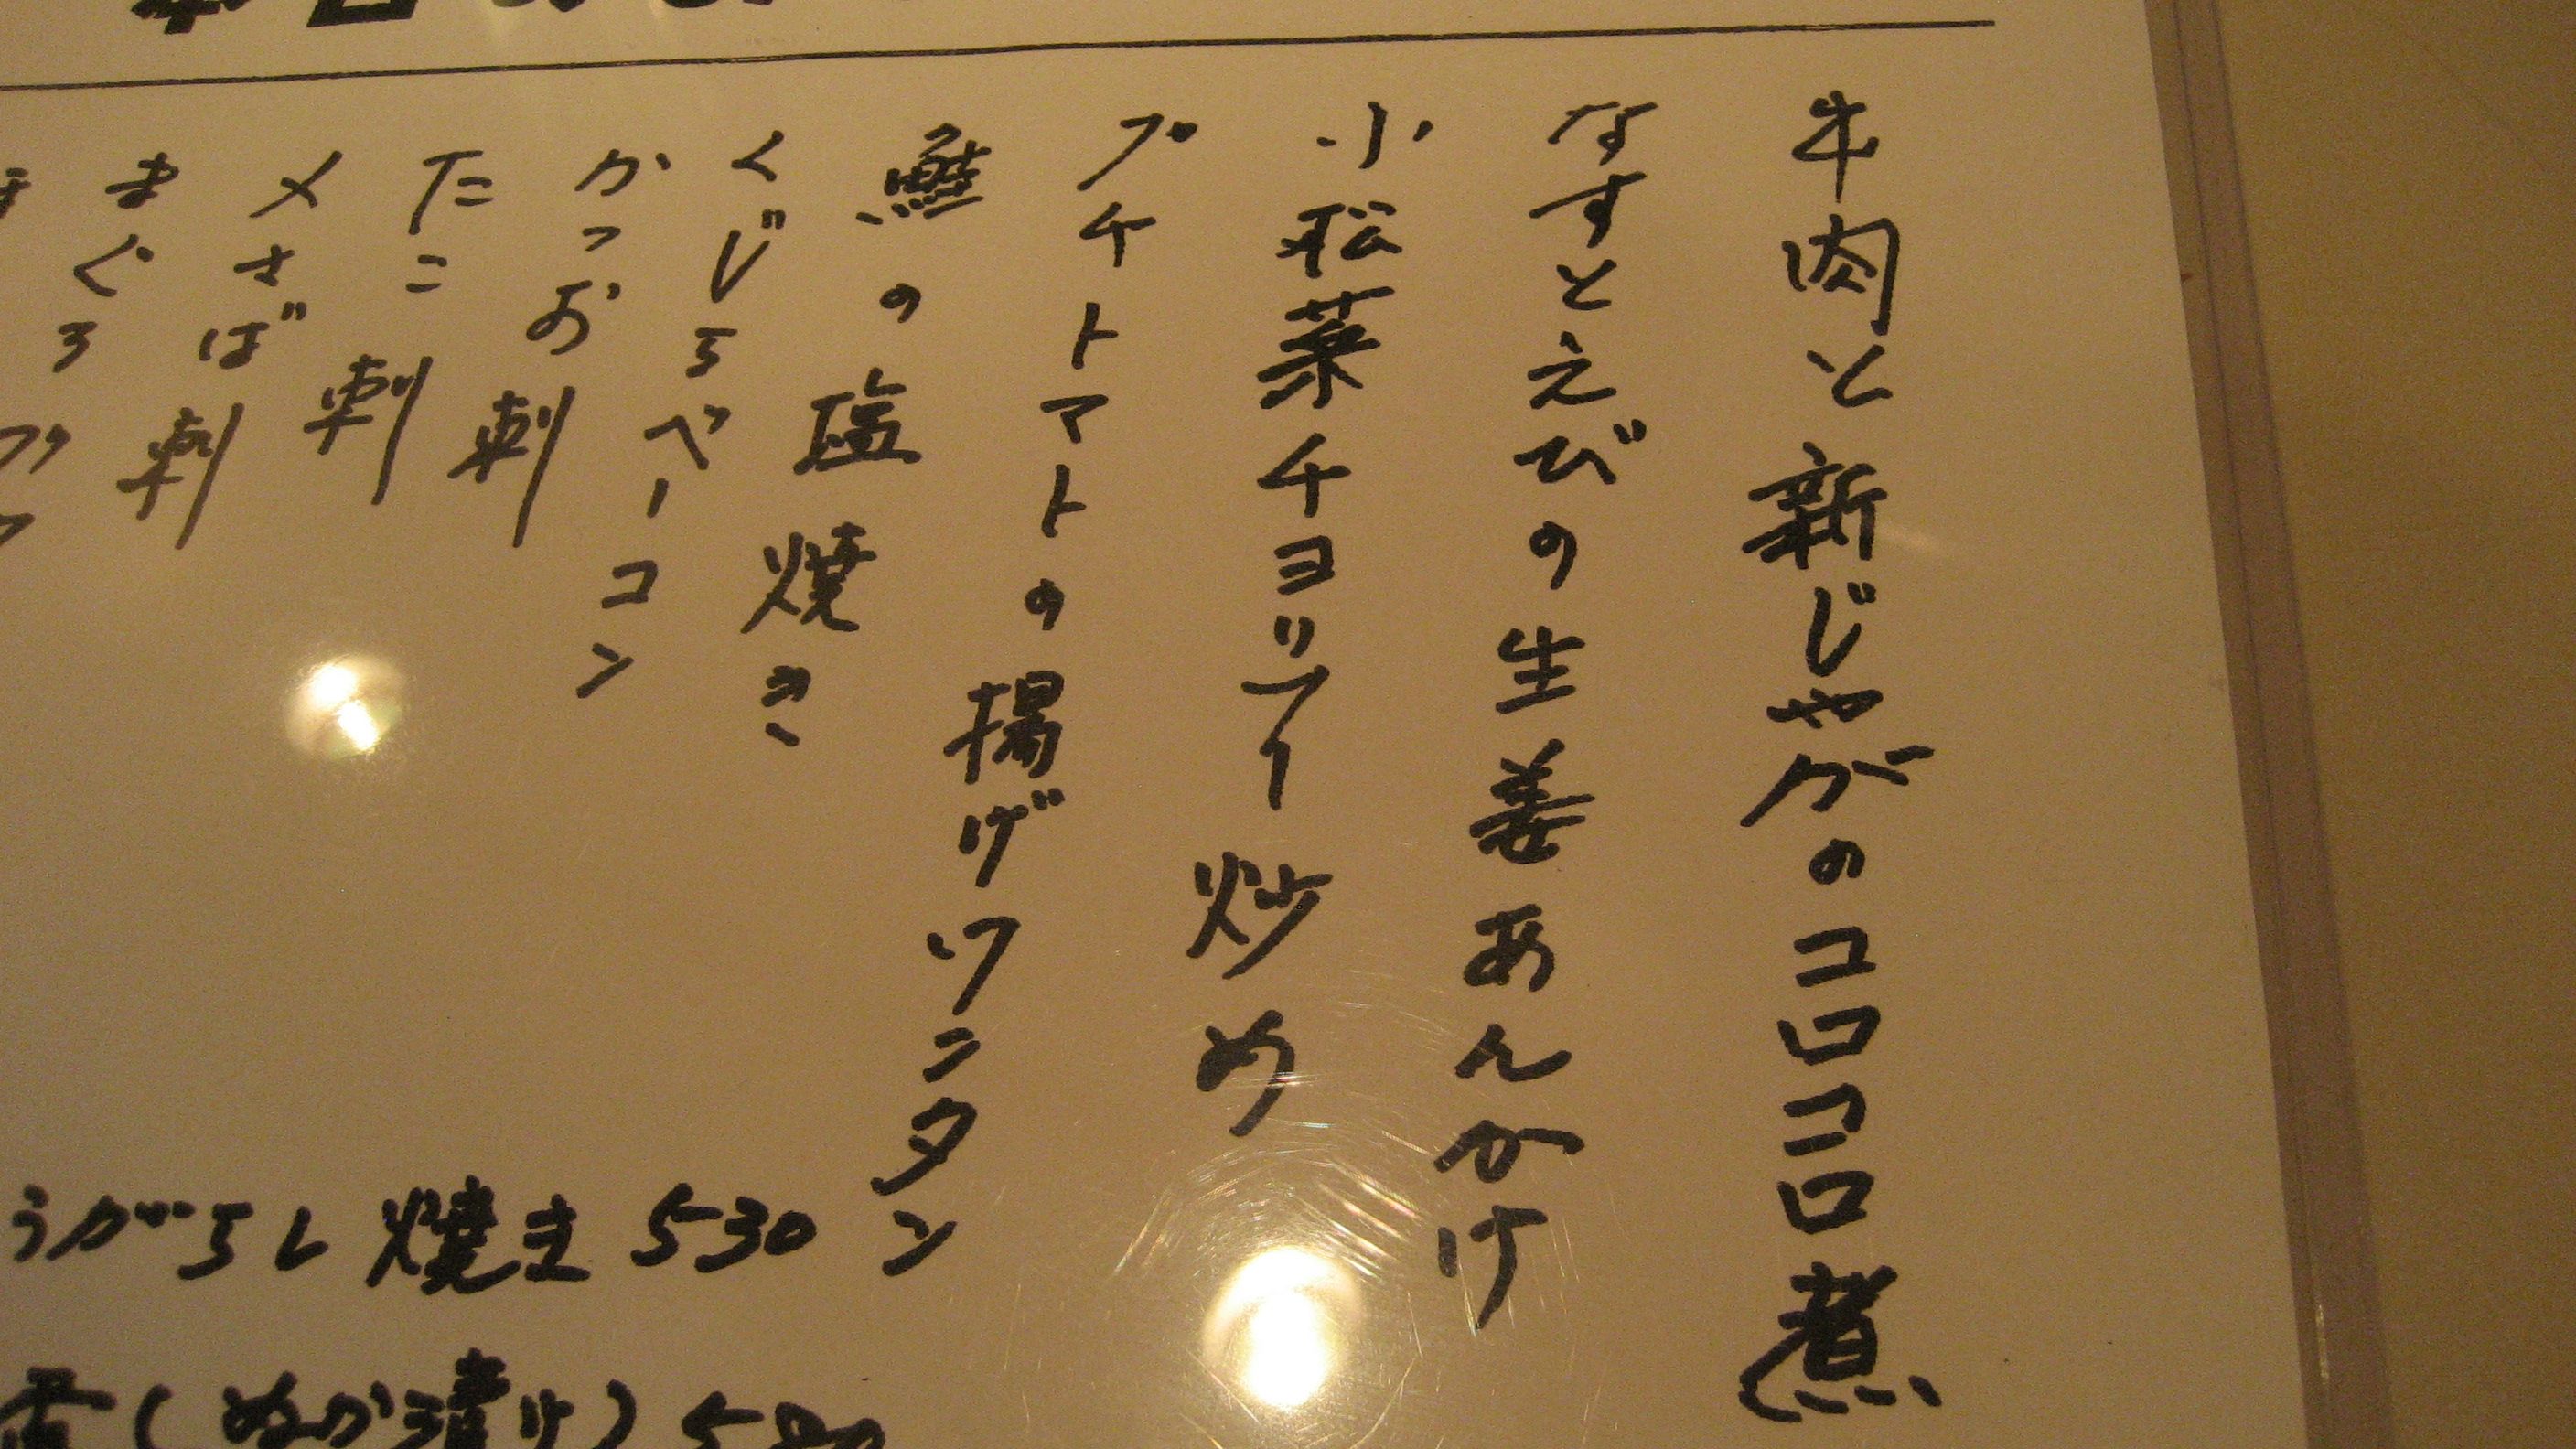 牛肉と新じゃがのコロコロ煮
なすとえびの生姜あんかけ
小松菜チョリソー炒め
プチトマトの揚げワンタン
鮭の塩焼き
くじらベーコン
かつお刺
たこ刺
〆さば刺
まぐろ
うがらし焼き 530
(ぬか漬け)